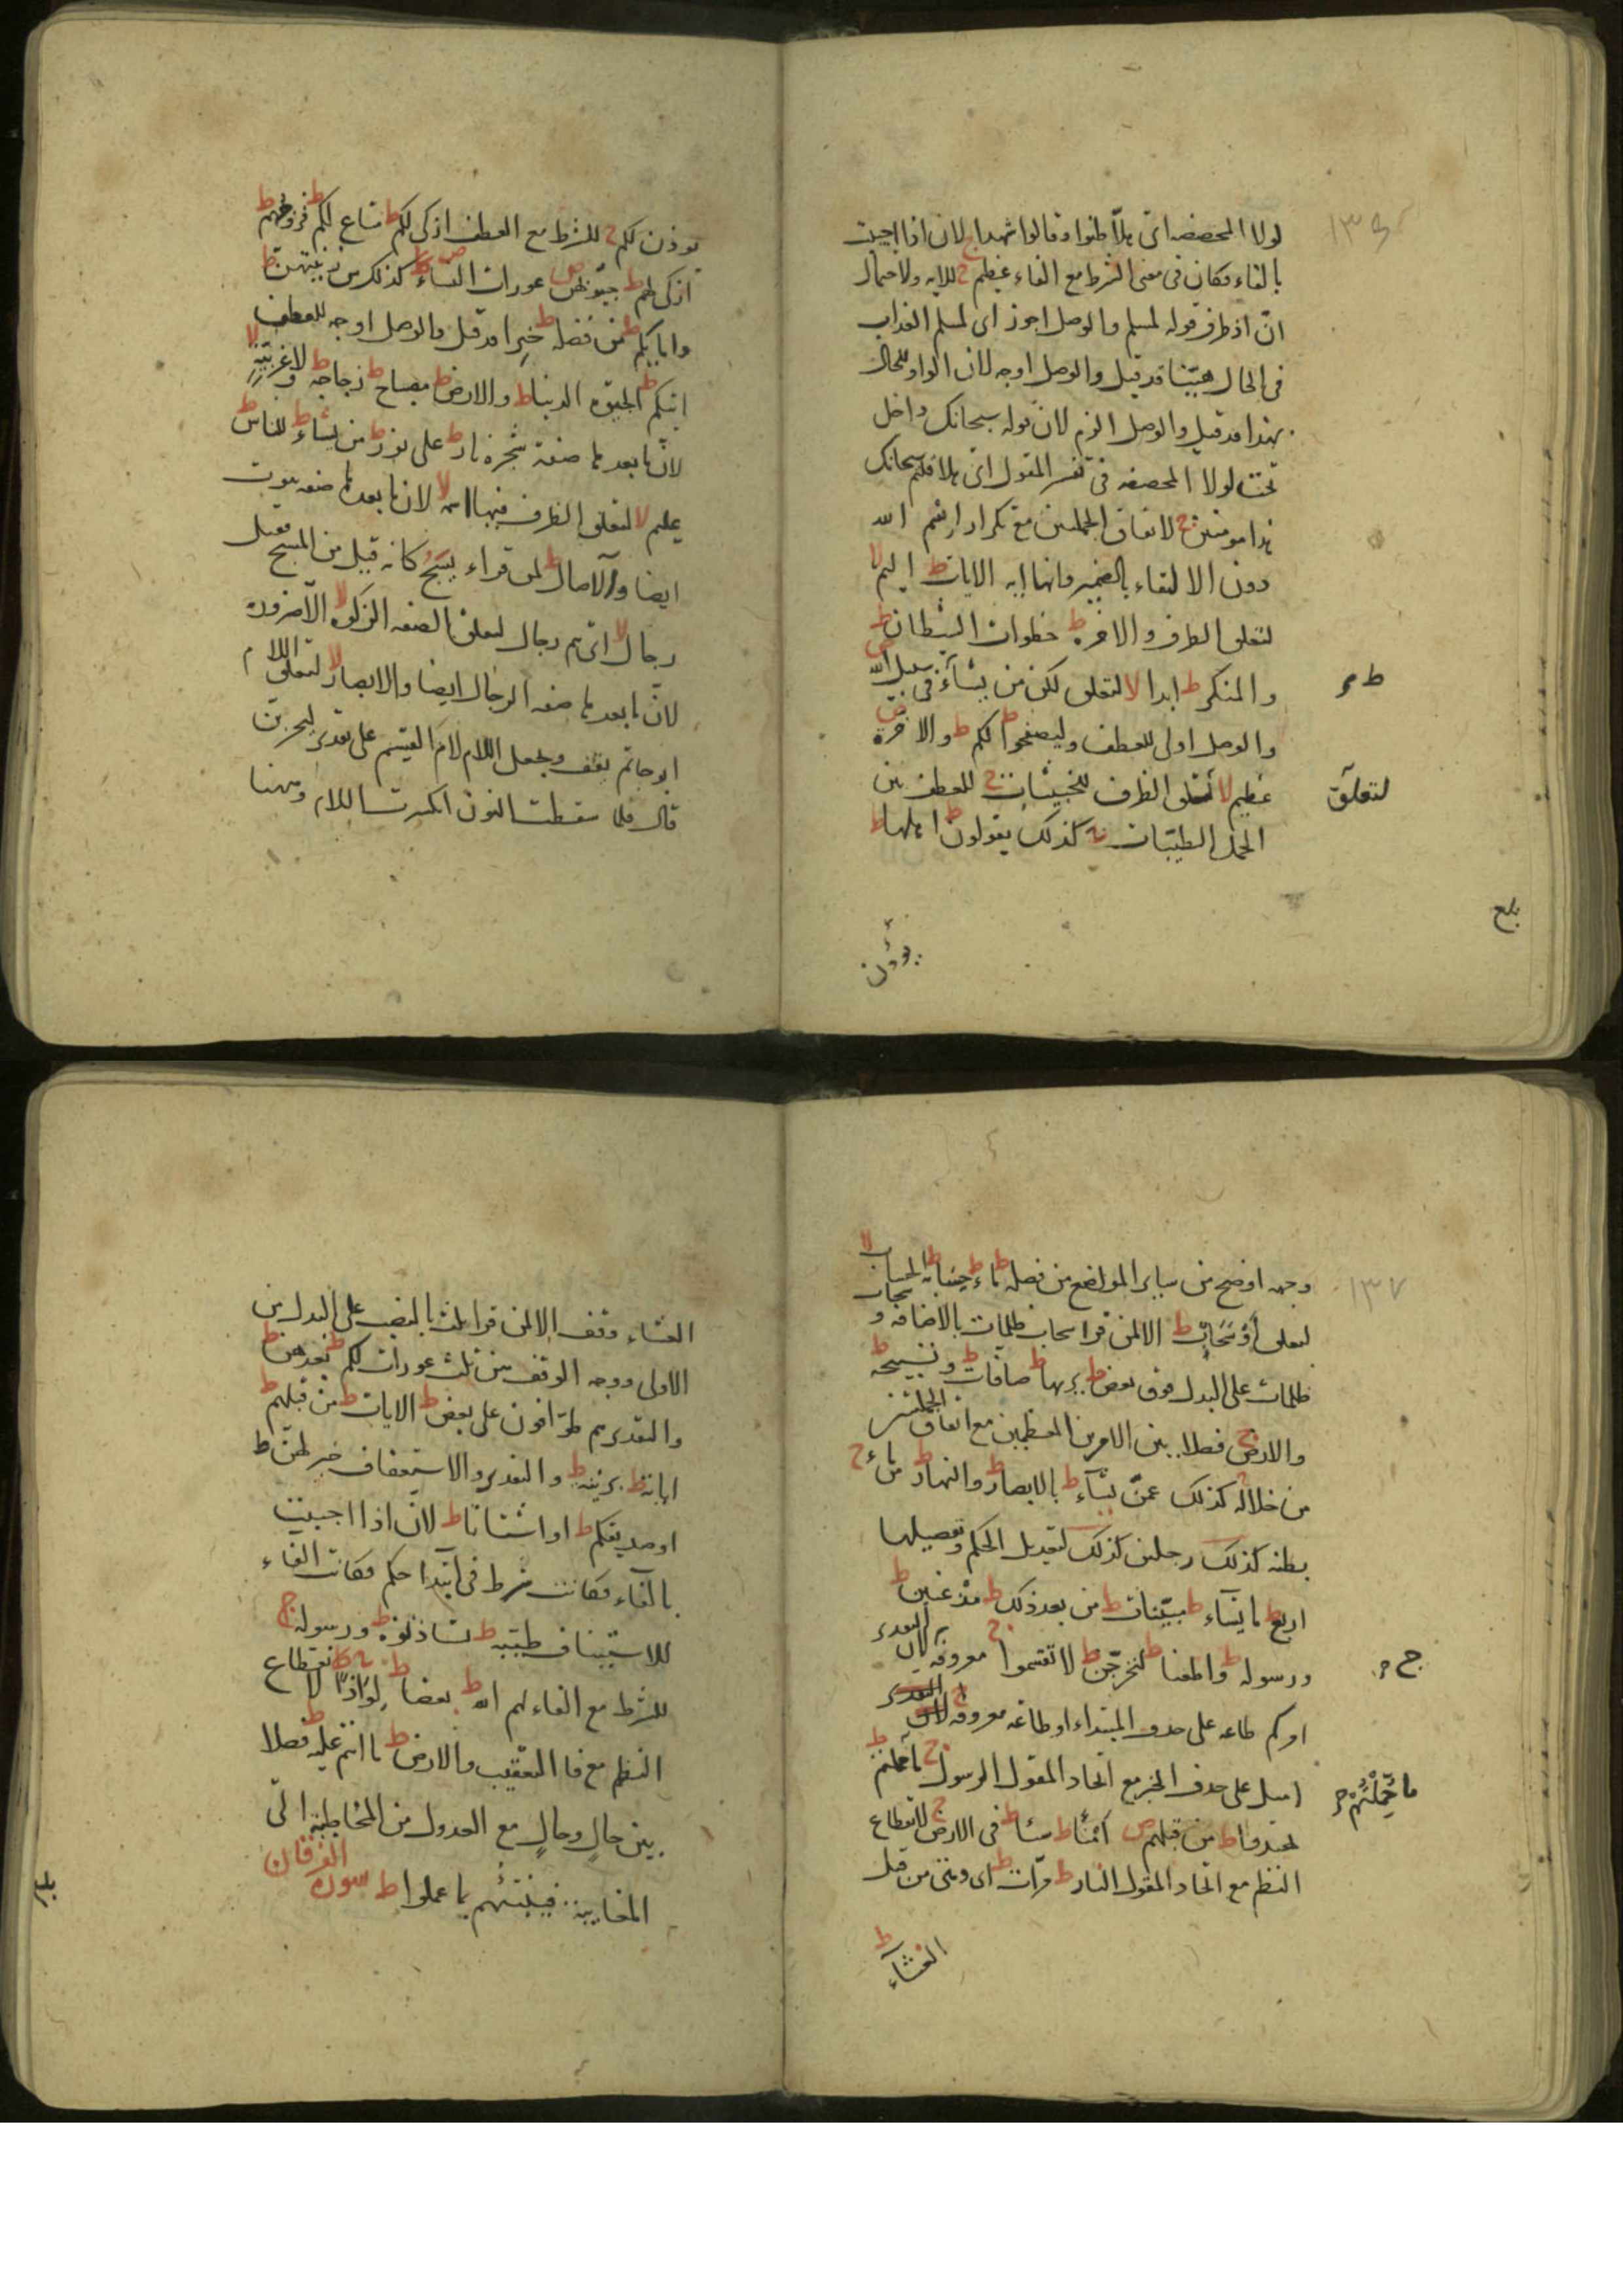 ١٣٥
لولا المحضضه اى هلّا ظنوا وقالوا شهداج لان اذا اجيبت
بالفاء فكان فى معنى الشرط مع الفاء عظيم ج للايه ولاحتمال
انّ اذ ظرف قوله لمسكم والوصل اجوز اى لمسكم العذاب
فى الحال هيّنا قد قيل والوصل اوجه لان الواو للحال
بهذا قد قيل والوصل الزم لان قوله سبحانك داخل
تحت لولا المحضضه فى تفسر المقول اى هلا قلتم سبحانك
هذا مومنين ج لاتفاق الجملتين مع تكرار اسم الله
دون الالتفاء بالضمير وانها ايه الايات ط اليم لا
لتعلق الظرف والاخره ط خطوات الشيطان ط
والمنكر ط ابدا لا لتعلق لكن من يشآء فى سبيل الله ص
ط م
والوصل اولى للعطف وليصفحوا ط لكم ط والاخرة ص
عظيم لا لتعلق الظرف للخبيثات ج للعطف بين
لتعلّق
الجمل الطيّبات ج كذلك يقولون ط اهلها ط
بلغ
يؤذن
يوذن لكم ج للشرط مع العطف ازكى لكم ط متاع لكم ط فروجهم ط
ازكى لهم ط جيوبهن ص عورات النساء ص كذلك من زينتهن ط
وامايكم ط من فضله ط خيرا قد قيل والوصل اوجه للعطف
اتيكم ط الحيوة الدنيا ط والارض ط مصباح ط زجاجة ط ولا غربيّةٍ لا
لانّ ما بعدها صفة شجرة نار ط على نور ط من يشاء ط للناس ط
عليم لا لتعلق الظرف فيها اسمه لا لان ما بعدها صفه بيوت
ايضا والآصال ط لمن قراء يسبَّح كانه قيل من المسبح فقيل
رجال لا اى هم رجال لتعلق الصفه الزكوه لا
لانّ ما بعدها صفه الرجال ايضا والابصار لا لتعلق اللام
ابو حاتم يقف ويجعل اللام لام القسم على تقدير ليجزين
قال فلما سقطت النون انكسرت اللام وههنا
١٣٧
وجهه اوضح من سایر المواضع من فضله ط ماء ط حسابه ط الحساب لا
لتعلق أوْ سَحَابٌ ط الا لمن قرا سحاب ظلمات بالاضافه و سحاب
ظلمات على البدل فوق بعض ط يريها ط صافّات ط وتسبيحه ط
والارض ج فصلا بين الامرين المعظمين مع اتفاق الجملتين
من خلاله ج كذلك عمّن يشآء ط بالابصار ط والنهار ط من ماء ج
بطنه كذلك رجلين كذلك لتعديل الحكم وتفصيلها
اربع ط ما يشاء ط مبيّنات ط من بعد ذلك ط مذعنين ط
ورسوله ط واطعنا ط ليخرجنّ ط لا تقسموا ج معروفه
ج م
اوكم طاعه على حذف المبتداء او طاعه معروفه
امثل على حذف الخبر مع اتحاد المقول الرسول ج ما حملتم ط
ما حُمِّلْتُمْ م
تهتدوا ط من قبلهم ص أمنا ط شيئا ط فى الارض ج لانقطاع
النظم مع اتحاد المقول النار ط مرّات ط اى وهى من قبل
العشآء ط
العشاء وقف الا لمن قرا ثلث بالنصب على البدل من
الاولى ووجه الوقف بين ثلث عورات لكم ط بعدهنّ ط
والتقدير هم طوّافون على بعض ط الايات ط من قبلهم ط
اياته ط بزينة ط والتقدير والاستعفاف خير لهنّ ط
او صديقكم ط او اشتاتا ط لانّ اذا اجيبت
بالفآء فكانت شرط فى ابتدا حكم فكانت الفاء
للاستيناف طيّبه ط تستاذنوه ط ورسوله ج
للشرط مع الفاء لهم الله ط بعضا ط لِوَاذًا ج لانقطاع
النظم مع فا التعقيب والارض ط ما انتم عليه ط فصلا
بين حالٍ وحالٍ مع العدول من المخاطبة الى
المغايبة فينبّئهم بما عملوا ط سورة الفرقان